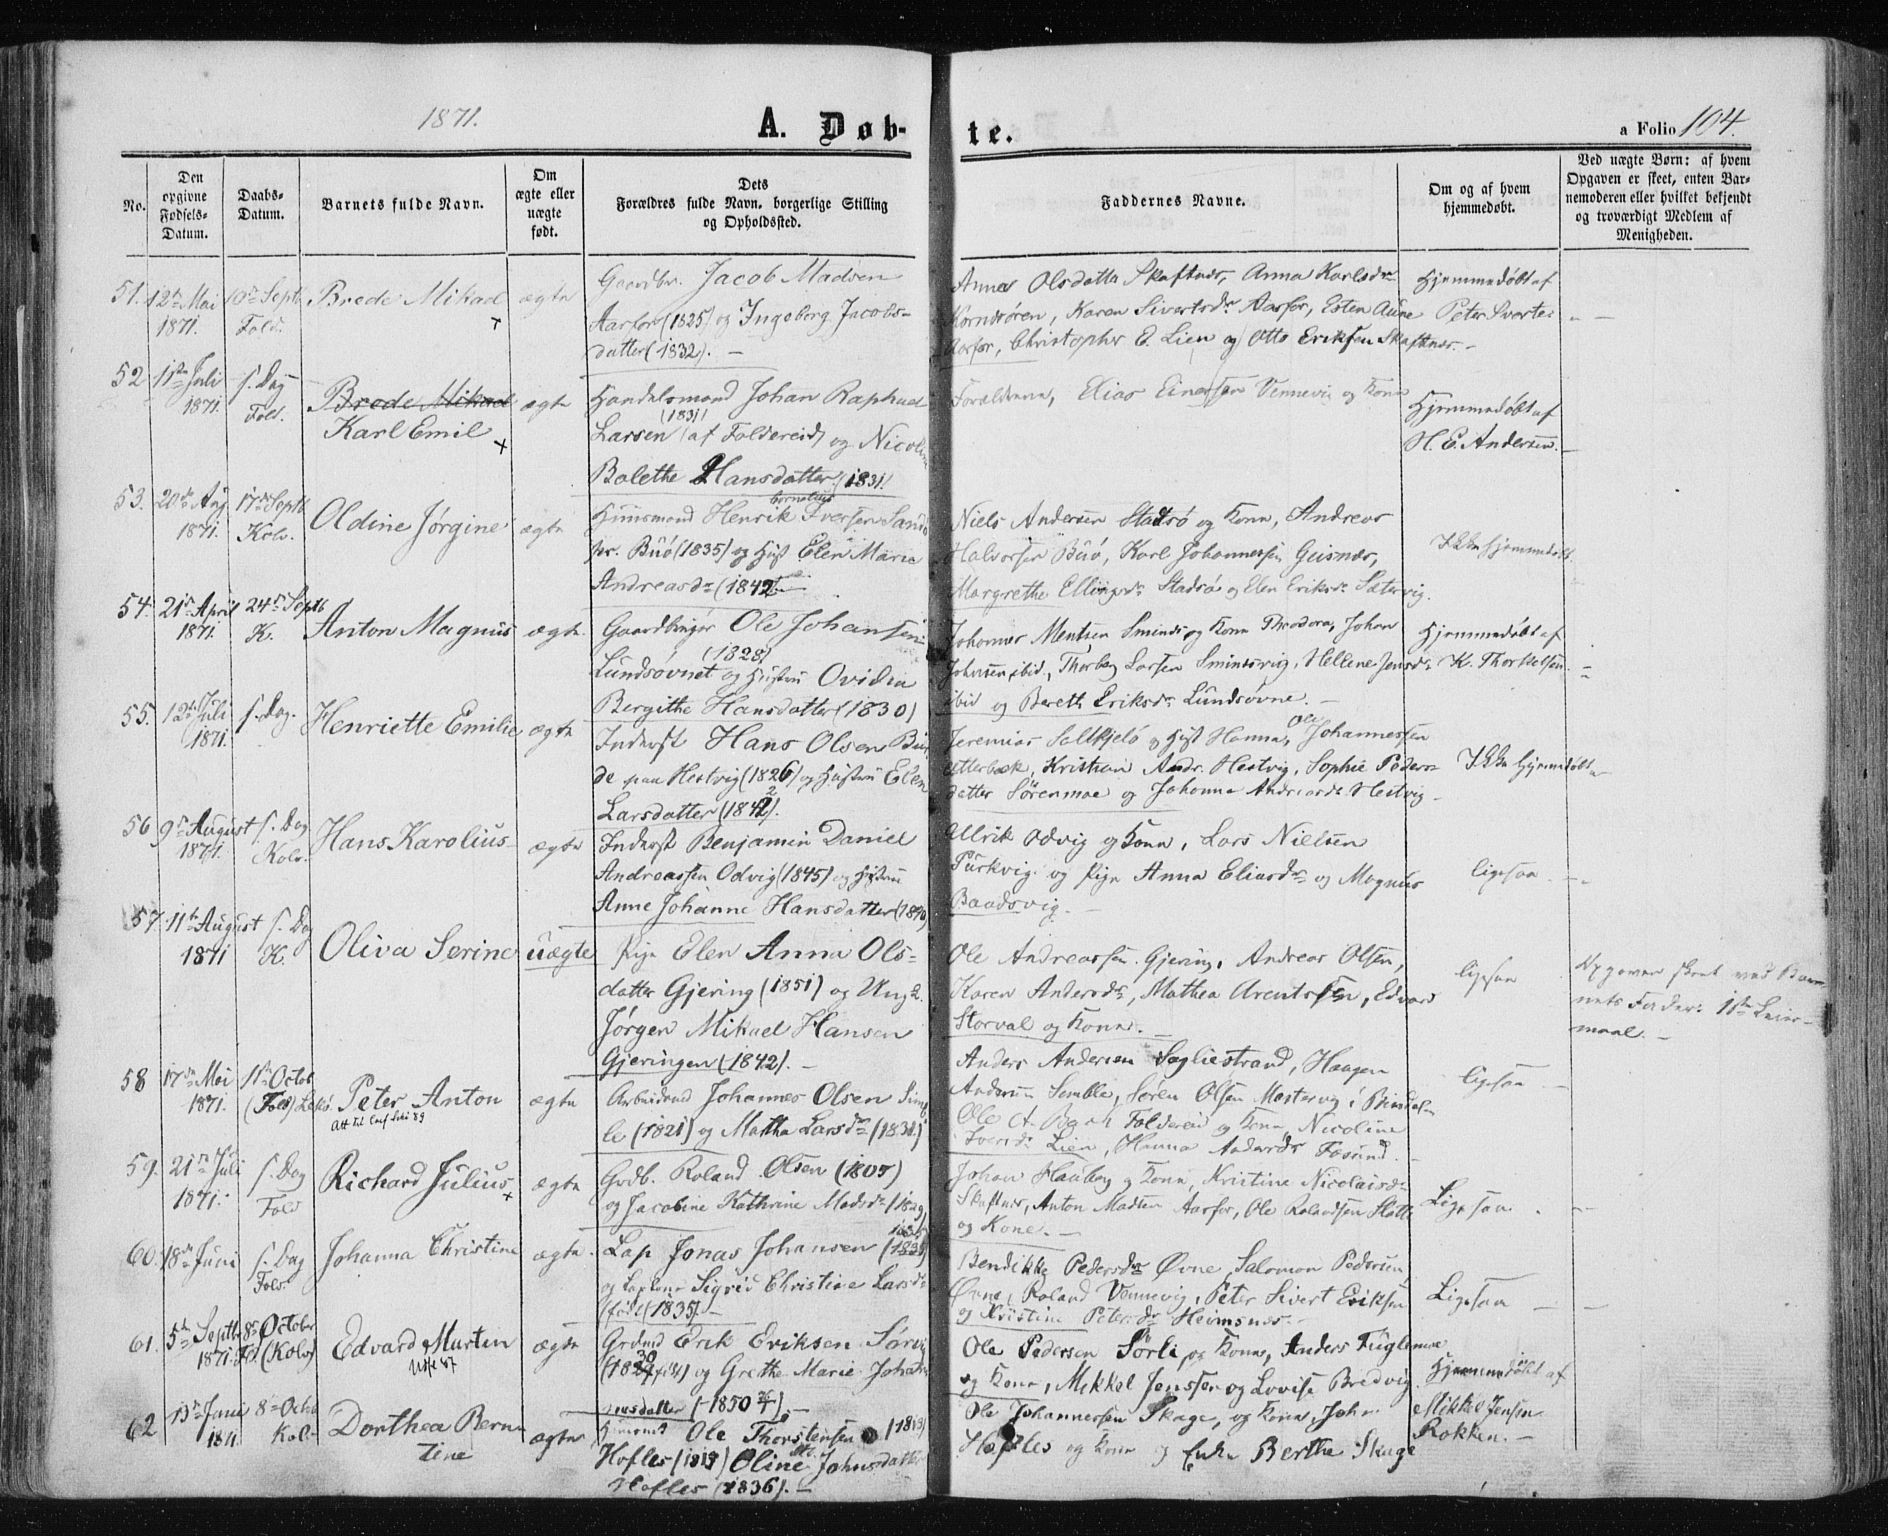 1871.
A. Døb-
te.
a Folio 104.
No.
Den opgivne Fødsels-Datum.
Daabs-Datum.
Barnets fulde Navn.
Om ægte eller uægte født.
Dets Forældres fulde Navn, borgerlige Stilling og Opholdssted.
Faddernes Navne.
Om og af hvem hjemmedøbt.
Ved uægte Børn: af hvem Opgaven er skeet, enten Bar-
nemoderen eller hvilket bekjendt
og troværdigt Medlem af
Menigheden.
51. 12te Mai 1871. 10de Septb Fold. Brede Mikael ægte
Gaardbr. Jacob Madsen
Aarfor (1825) og Ingeborg Jacobs-
datter (1832). —
Anna Olsdatter Skaftnæs, Anna Karlsdr
Kornsøren, Karen Sivertsdr Aarfor, Esten Aune
Aarfor, Christopher E. Lien og Otto Eriksen Skaftnæs. —
Hjemmedøbt af
Peter Sverts
52 11te Juli 1871. s. Dag Fold. Brede Mikael
Karl Emil ægte
Handelsmand Johan Raphael
(1831)
Larsen (af Foldereid) og Nicoline
Balethe Hansdatter (1831)
Forældrene, Elias Einersen Vennevig og Kone
Hjemmedøbt af
H. E. Andersen.
53. 20de Aug 1871. 17de Septb Kolv. Oldine Jørgine ægte
Cornelius
Huusmand Henrik Iversen
pr. Buø (1835) og Hust Elen Marie
Andreasdr (1842
Niels Andersen Stadsø og Kone, Andreas
Halvorsen Buø, Karl Johannessen Geisnæs,
Margrethe Ellingsdr Stadsø og Elen Eriksdr Sætervig.
Ikke hjemmedøbt
54. 21de April 1871. 24de Septb K. Anton Magnus ægte
Gaardbruger Ole Johansen
(1828)
Lundsøvnet og Hustru Ovidia
Bergithe Hansdatter (1830)
Johannes Mentsen og Kone Theodora, Johan
Johnsen ibid, Thorberg Larsen, Hellene Jensdr
ibid og Bereth Eriksdr Lundsøvne. —
Hjemmedøbt af
K. Thorkelsen.
55. 12te Juli 1871. s. Dag. Henriette Emilie ægte
Inderst Hans Olsen
de paa Hestvig (1826) og Hustru Elen
Larsdatter (1842).
Jeremias Salkjelø og Hust Hanna, Ole Johannessen
Kristian Andr. Hestvig, Sophie Peders
datter Sørenmoe og Johanna Andreasdr Hestvig —
Ikke hjemmedøbt
56 9de August 1871. s. Dag Kolv. Hans Karolius ægte
Inderst Benjamin Daniel
Andreassen Odvig (1845) og Hustru
Anne Johanne Hansdatter (1840)
Ullrik Odvig og Kone, Lars Nielsen
Purkvig og Pige Anna Eliasdr og Magnus
Baadsvig. —
ligesaa
57. 11te August 1871 s. Dag K. Oliva Serine uægte
Pige Elen Anna Ols-
datter Gjering (1851) og Ung.
Jørgen Mikael Hansen
Gjeringen (1842). —
Ole Andreassen Gjering, Andreas Olsen,
Karen Andersdr, Mathea Arentsen, Edvard
Storval og Kone. —
ligesaa
Opgaven skeet ved Bar-
nets Fader: 1ste Leier-
maal. —
58 17de Mai 1871. 11te Octob (Fold) Lekø. Peter Anton ægte
Att til
Arbeidsmd Johannes Olsen Sem
le (1821) og Martha Larsdr (1831)
Anders Andersen Sagliestrand, Haagen
Andersen Semble, Søren Olsen i Bindalen
Ole A. Foldereid og Kone, Nicoline
Iversdr Lien, Hanna Andersdr
ligesaa
59. 21de Juli 1871. s. Dag Fold Richard Julius ægte
Grdb. Roland Olsen (1805)
og Jacobine Kathrine Madsdr (1829)
Johan Hauberg og Kone, Kristine Nicolaisdr
Skaftnæs, Anton Madsen Aarfor, Ole Rolandsen
og Kone. —
Ligesaa
60. 18de Juni s. Dag Fold. Johanna Christine ægte.
Lap Jonas Johansen (1835)
og Lapkone Sigrid Christine Larsdr
(født (1835). —
Bendikke Pedersdr Øvne, Salomon Pedersen
Øvne, Roland Vennevig, Peter Sivert Eriksen
og Kristine Petersdr Heimsnæs. —
Ligesaa
61. 5te Septb 1871. 8de October (Kolv) Edvard Martin ægte
Grdmd Erik Eriksen
og Grethe Marie Johan
nesdatter (1850
Ole Pedersen Sørli og Kone, Anders Fuglemoe
og Kone, Mikkel Jenssen og Lovise Bredvig
Hjemmedøbt af
62 13de Juni 1871 8de Octb Kolv Dorthea Bern-
tine ægte
Ole Thorstensen (1813)
Hofles (1813) Oline Johnsdatter
Hofles (1836). —
Ole Johannessen Skage, og Kone, John
Hofles og Kone og Enke Berthe Skage
Mikkel Jensen
Rokken. —